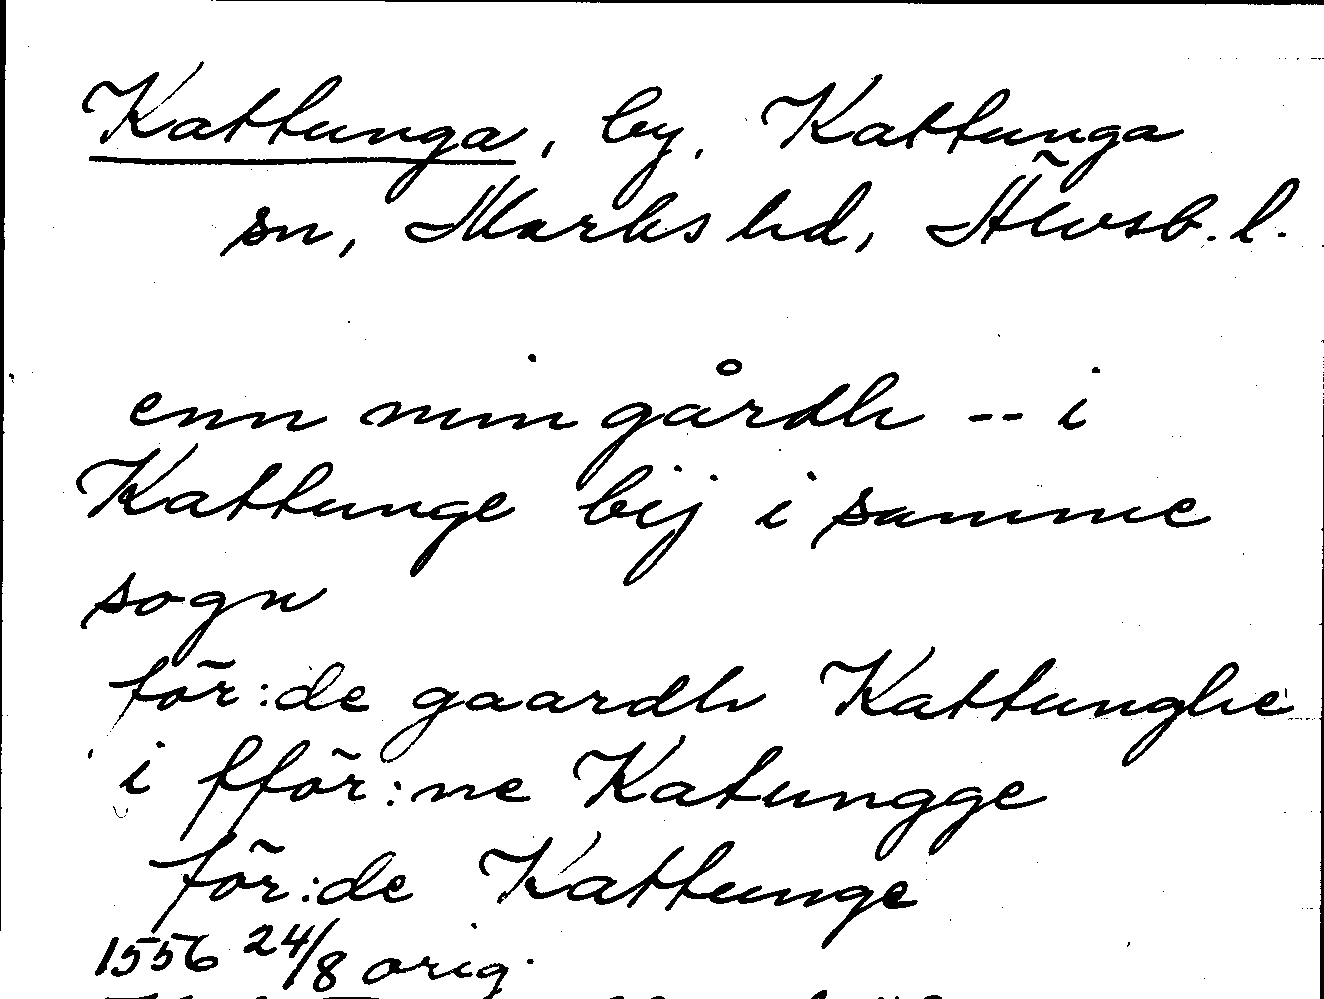 Kattunga, by, Kattunga
sn, Marks hd, Älvsb. l.
enn min gårdh -- i
Kattunge bij i samme
sogn
för:de gaardh Kattunghe
i fför:ne Katungge
för:de Kattunge
1556 24/8 orig.